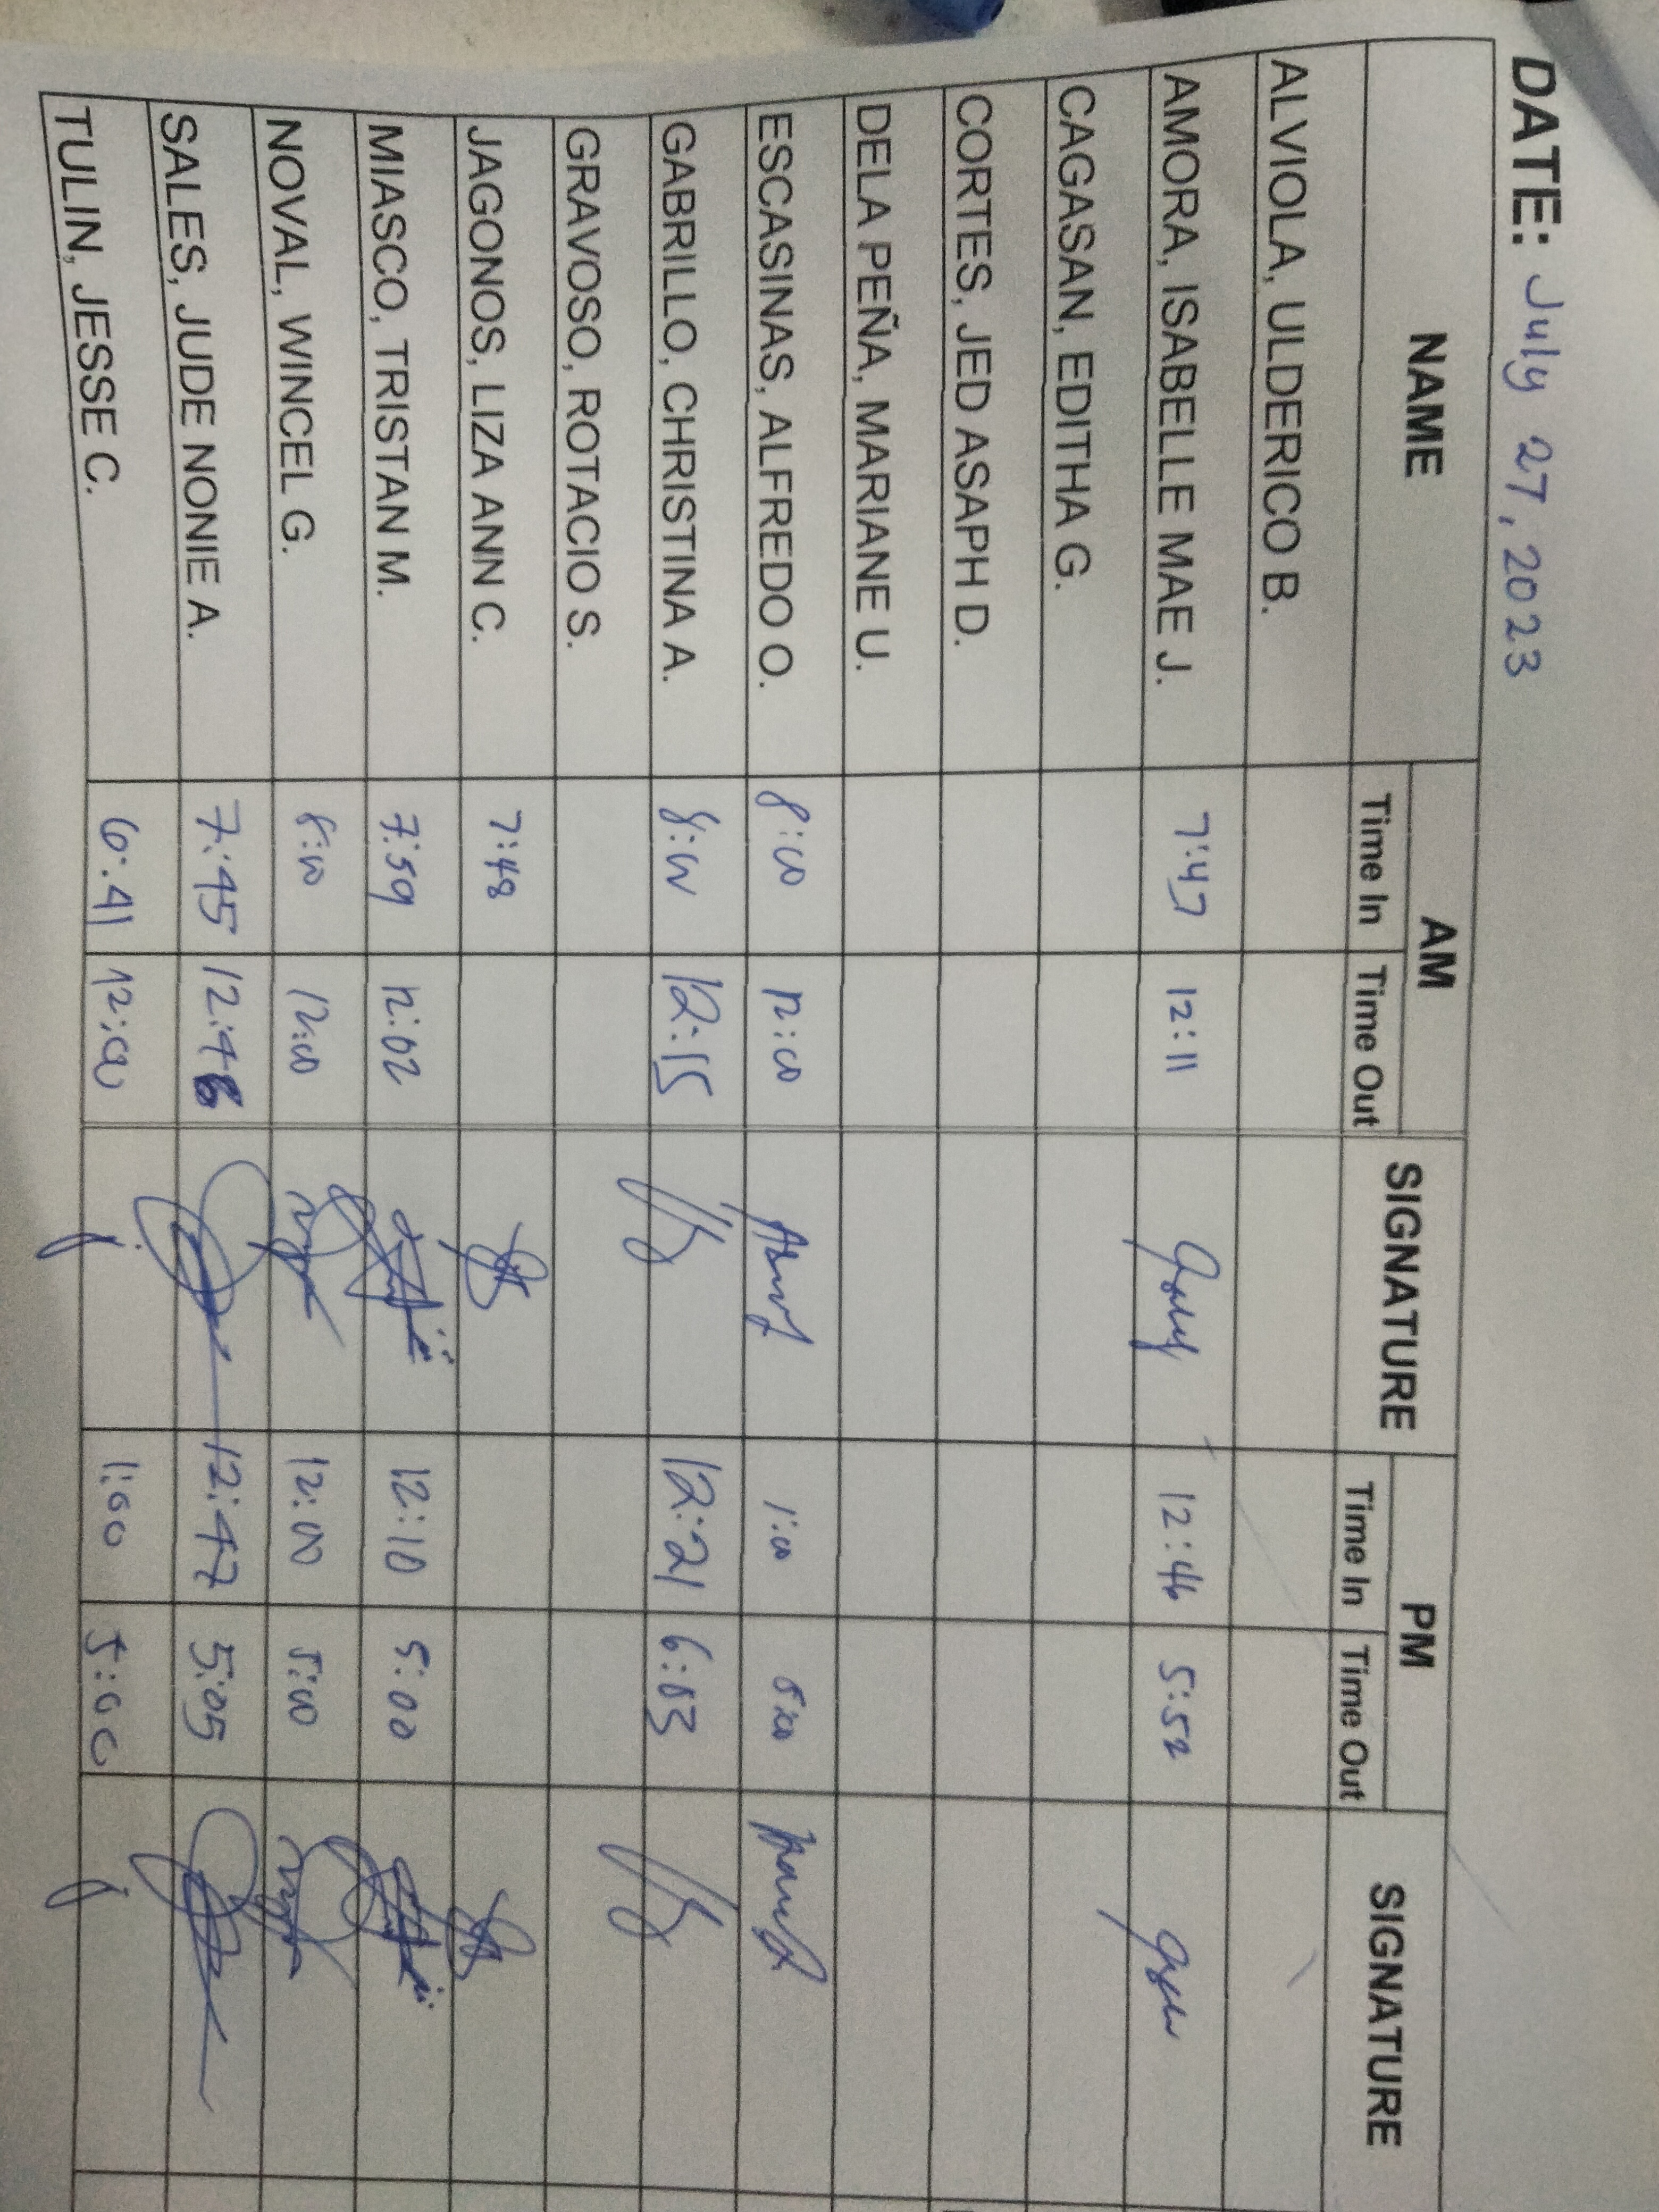 DATE: July 27, 2023
NAME AM SIGNATURE PM SIGNATURE
Time In Time Out Time In Time Out
ALVIOLA, ULDERICO B.
AMORA, ISABELLE MAE J. 7:47 12:11 12:46 5:52
CAGASAN, EDITHA G.
CORTES, JED ASAPH D.
DELA PEÑA, MARIANE U.
ESCASINAS, ALFREDO O. 8:00 12:00 1:00 5:00
GABRILLO, CHRISTINA A. 8:00 12:15 12:21 6:03
GRAVOSO, ROTACIO S.
JAGONOS, LIZA ANN C. 7:48
MIASCO, TRISTAN M. 7:59 12:02 12:10 5:00
NOVAL, WINCEL G. 8:00 12:00 12:00 5:00
SALES, JUDE NONIE A. 7:45 12:46 12:47 5:05
TULIN, JESSE C. 6:41 12:00 1:00 5:00